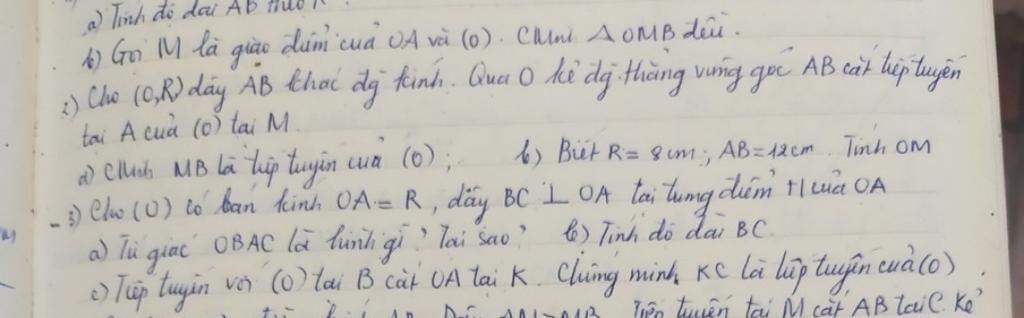 a) Tính độ dài AB theo R
b) Gọi M là giao điểm của OA và (O). CMinh △OMB đều.
2) Cho (O,R) dây AB khác đg kính. Qua O kẻ đg thẳng vuông góc AB cắt tiếp tuyến
tại A của (O) tại M.
a) CMinh MB là tiếp tuyến của (O); b) Biết R = 8cm; AB = 12cm. Tính OM
- 3) Cho (O) có bán kính OA = R, dây BC ⊥ OA tại trung điểm H của OA
a) Tứ giác OBAC là hình gì? Tại sao? b) Tính độ dài BC.
c) Tiếp tuyến với (O) tại B cắt OA tại K. Chứng minh KC là tiếp tuyến của (O).
Tiếp tuyến tại M cắt AB tại C. Kẻ